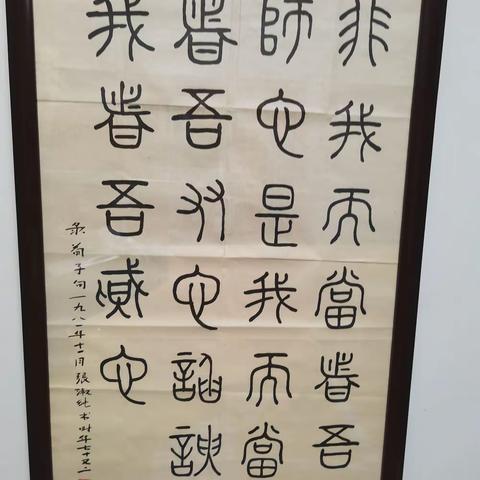 非我而當者吾
師也是我而當
者吾友也諂諛
我者吾賊也
录荀子句一九八一年十二月張淑纯书时年七十又二